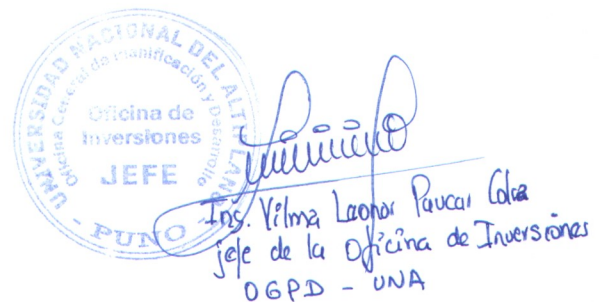 UNIVERSIDAD NACIONAL DEL ALTIPLANO
Oficina General de Planificación y Desarrollo
Oficina de
Inversiones
JEFE
- PUNO -
Ing. Vilma Leonor Paucar
jefe de la Oficina de Inversiones
OGPD - UNA